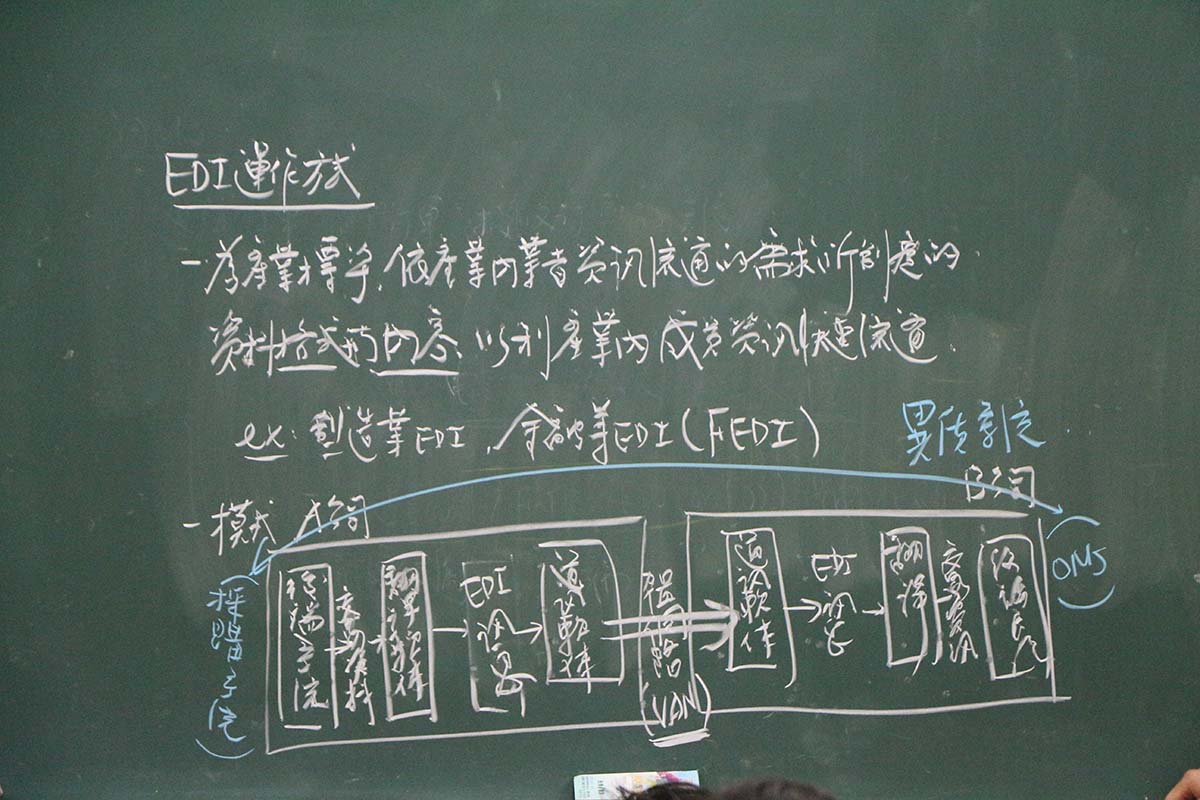 EDI運作方式
- 為產業標準,依產業內業者資訊流通的需求所制定的
資料格式與內容,以利產業內成員資訊快速流通.
ex: 製造業EDI,金融業EDI(FEDI)
異質系統.
- 模式
A公司
B公司
(採購系統)
後端系統
交易資料
翻譯軟体
EDI
訊息
通訊軟体
加值網路
(VAN)
通訊軟体
EDI
訊息
翻譯
交易資訊
後端系統
(OMS)